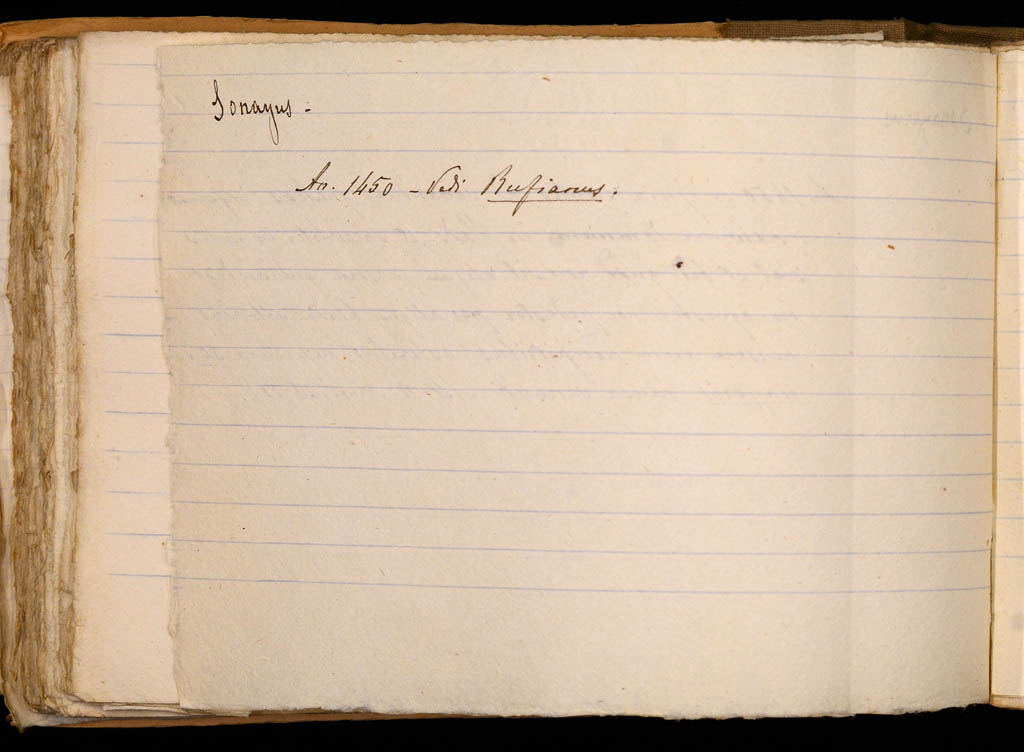 Sonayus -
An. 1450 - Vedi Rufianus.